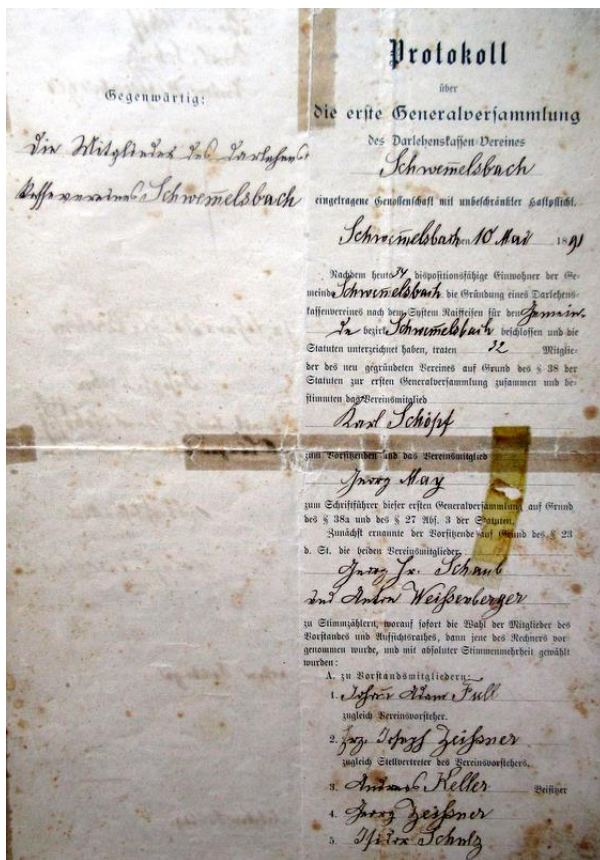 Gegenwärtig:
Die Mitglieder des Darlehens-
kassevereines Schwem̄elsbach
Protokoll
über
die erste Generalversammlung
des Darlehenskassen-Vereines
Schwem̄elsbach
eingetragene Genossenschaft mit unbeschränkter Haftpflicht.
Schwem̄elsbach den 10 Mai 1891
Nachdem heute 34 dispositionsfähige Einwohner der Ge-
meinde Schwem̄elsbach die Gründung eines Darlehens-
kassenvereines nach dem System Raiffeisen für den Gemein-
de bezirk Schwem̄elsbach beschlossen und die
Statuten unterzeichnet haben, traten 32 Mitglie-
der des neu gegründeten Vereines auf Grund des § 38 der
Statuten zur ersten Generalversammlung zusammen und be-
stimmten das Vereinsmitglied
Karl Schöpf
zum Vorsitzenden und das Vereinsmitglied
Georg May
zum Schriftführer dieser ersten Generalversammlung auf Grund
des § 38a und des § 27 Abs. 3 der Statuten.
Zunächst ernannte der Vorsitzende auf Grund des § 23
d. St. die beiden Vereinsmitglieder
Georg Schaub
und Anton Weißenberger
zu Stimmzählern, worauf sofort die Wahl der Mitglieder des
Vorstandes und Aufsichtsrathes, dann jene des Rechners vor-
genommen wurde, und mit absoluter Stimmenmehrheit gewählt
wurden:
A. zu Vorstandsmitgliedern:
1. Johann Adam Full
zugleich Vereinsvorsteher.
2. Frz. Joseph Zeißner
zugleich Stellvertreter des Vereinsvorstehers.
3. Andreas Keller Beisitzer
4. Georg Zeißner
5. Isidor Schulz